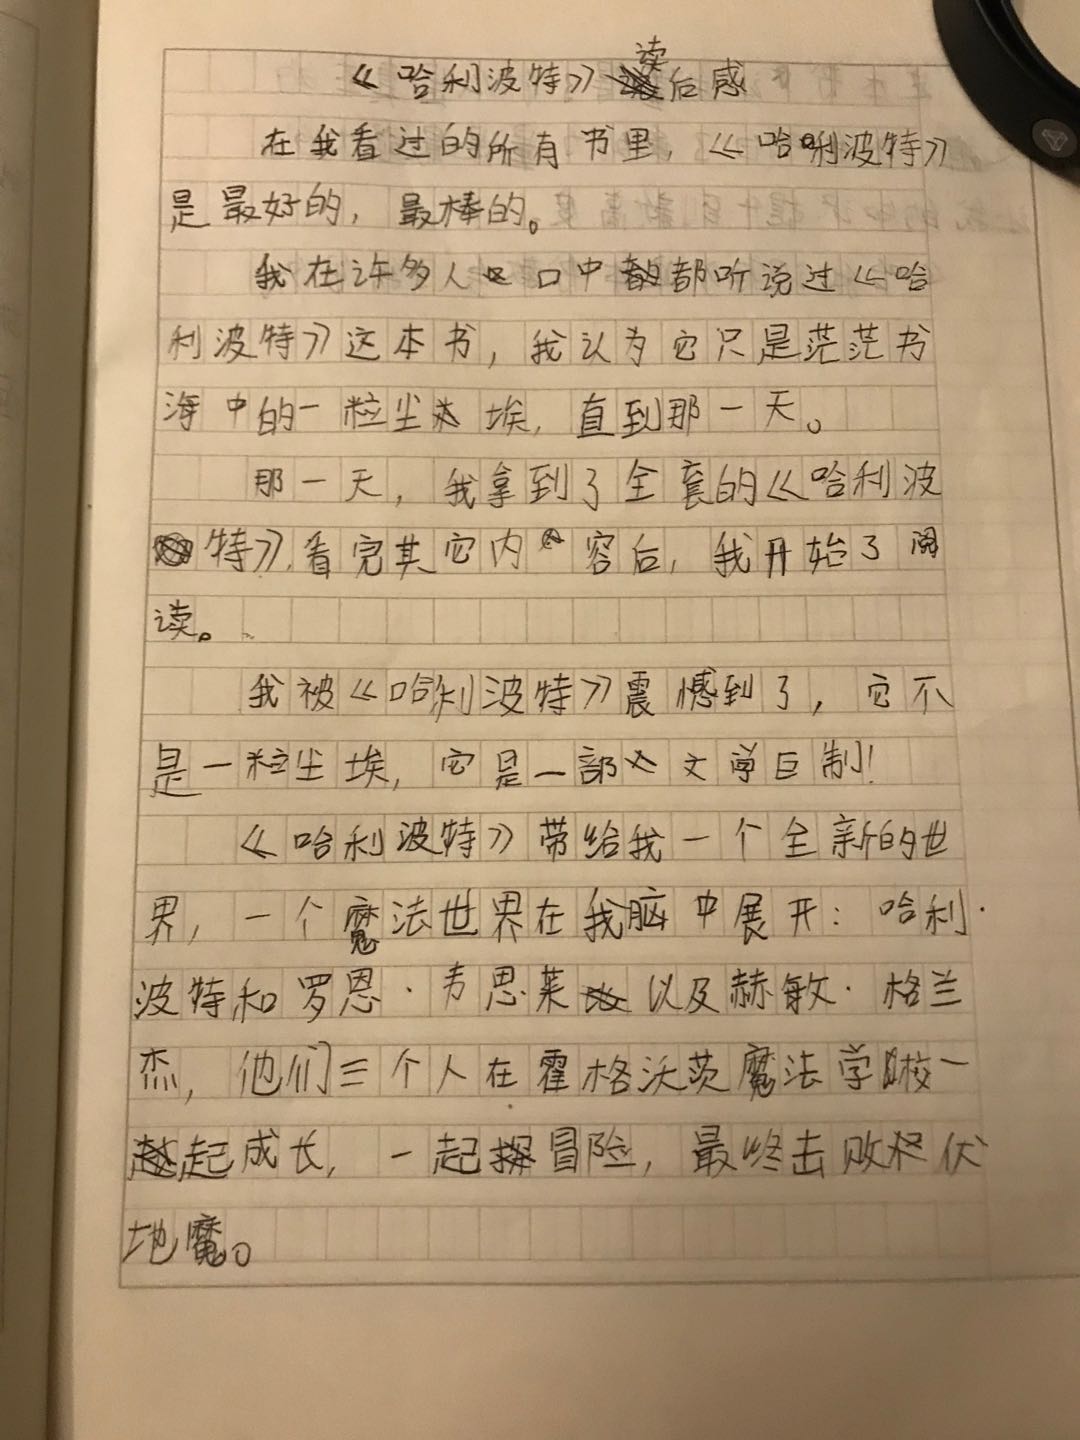 《哈利波特》读后感
在我看过的所有书里，《哈利波特》
是最好的，最棒的。
我在许多人口中都听说过《哈
利波特》这本书，我认为它只是茫茫书
海中的一粒尘埃，直到那一天。
那一天，我拿到了全套的《哈利波
特》，看完其它内容后，我开始了阅
读。
我被《哈利波特》震憾到了，它不
是一粒尘埃，它是一部文学巨制！
《哈利波特》带给我一个全新的世
界，一个魔法世界在我脑中展开：哈利·
波特和罗恩·韦思莱以及赫敏·格兰
杰，他们三个人在霍格沃茨魔法学校一
起成长，一起冒险，最终击败伏
地魔。